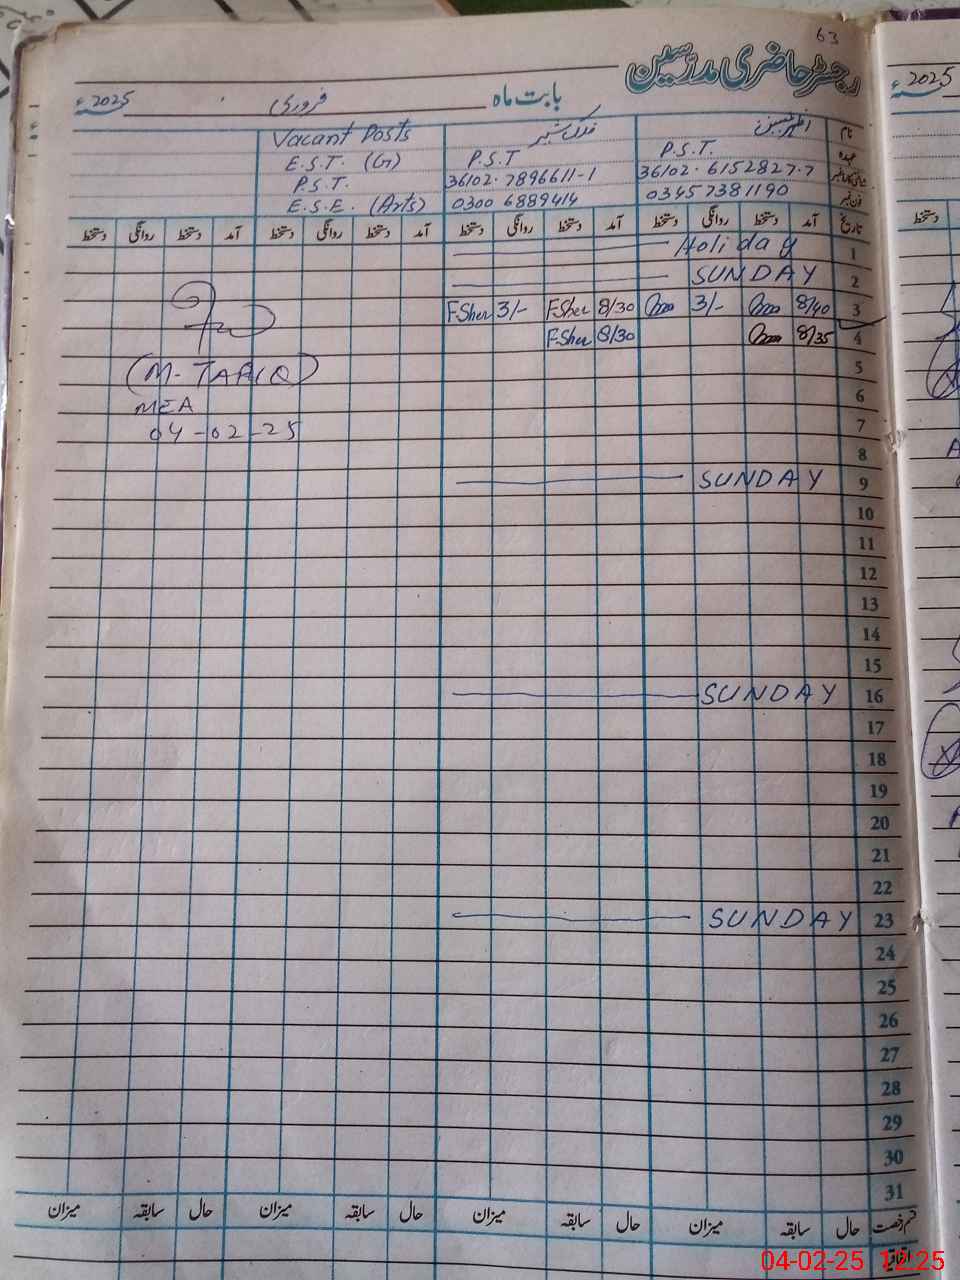 63
رجسٹر حاضری مدرسین
بابت ماہ فروری 2025ء
نام اظہر حسین فلک شیر Vacant Posts
عہدہ P.S.T. P.S.T E.S.T. (G)
شناختی کارڈ نمبر 36102.6152827.7 36102.7896611-1 P.S.T.
فون نمبر 03457381190 0300 6889414 E.S.E. (Arts)
تاریخ آمد دستخط روانگی دستخط آمد دستخط روانگی دستخط آمد دستخط روانگی دستخط آمد دستخط روانگی دستخط
1 Holiday
2 SUNDAY
3 8/40 3/- 8/30 F-Sher 3/- F-Sher
4 8/35 8/30 F-Sher
5
(M-TARIQ)
6
MEA
7
04-02-25
8
9 SUNDAY
10
11
12
13
14
15
16 SUNDAY
17
18
19
20
21
22
23 SUNDAY
24
25
26
27
28
29
30
31
قسم رخصت حال سابقہ میزان حال سابقہ میزان حال سابقہ میزان حال سابقہ میزان
اتفاقیہ
2025ء
دستخط
04-02-25 12:25